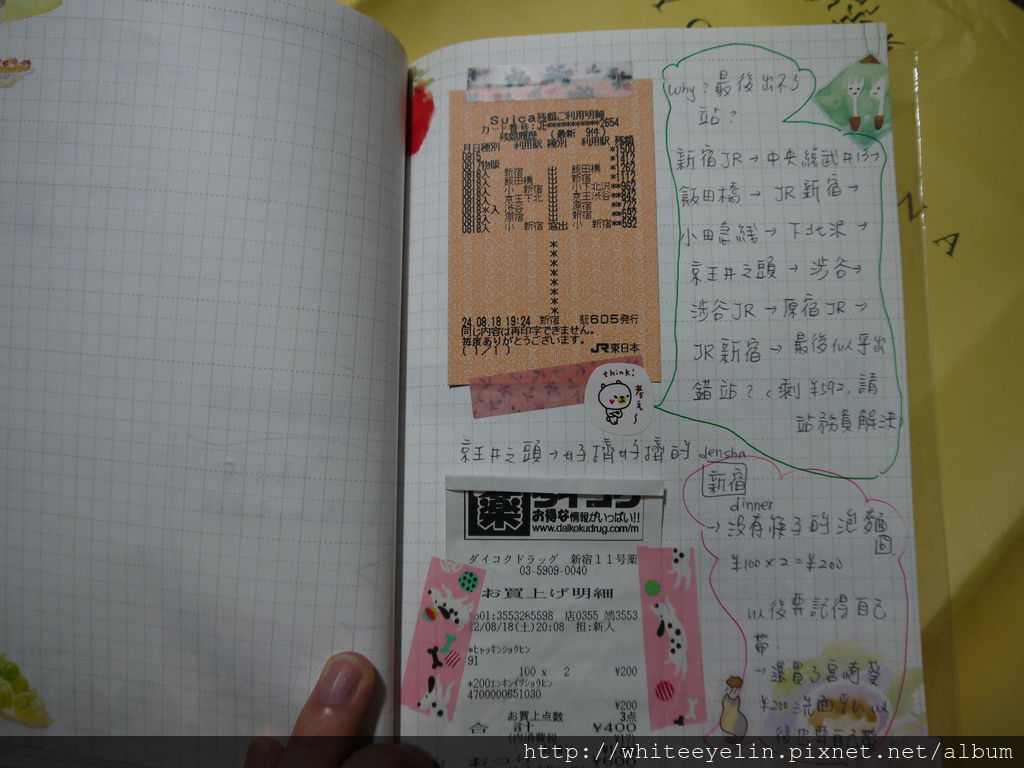 Suica残額ご利用明細
カード番号:JE*************2654
残額履歴 (最新 9件)
月日種別 利用駅 種別 利用駅 残額
0815 *1500
0817物販 **417
0818入 新宿 出 飯田橋 **267
0818入 飯田橋 出 新宿 *1117
0818入 小 新宿 出 小下北沢**967
0818入 京王下北 出 京王渋谷**847
0818*入 渋谷 出 原宿
0818入 原宿 出 新宿 **592
0818入 小 新宿 窓出 小 新宿**592
24.08.18 19:24 新宿 駅605発行
同じ内容は再印字できません。
毎度ありがとうございます。
(1/1) JR東日本
think!
考え~
why?最後出不了
站?
新宿JR→中央總武
飯田橋→JR新宿→
小田急線→下北沢→
京王井之頭→渋谷→
渋谷JR→原宿JR→
JR新宿→最後似乎出
錯站?剩¥592,請
站務員解決
京王井之頭→好擠好擠的 densha
新宿
dinner
→沒有筷子的泡麵
¥100×2=¥200
以後要記得自己
帶.
→還買了宮崎葵
¥200 洗面乳,以
薬 ダイコク
お得な情報がいっぱい!!
www.daikokudrug.com/m
ダイコクドラッグ 新宿11号薬
03-5909-0040
お買上げ明細
No01:3553265598 店0355 鳩3553
12/08/18(土)20:08 担:新人
*ヒャッキンショクヒン
91
100 x 2 ¥200
*200エンキンイツショクヒン
4700000651030
¥200
お買上点数 3点
合計 ¥400
(内消費税 ¥17)
http://whiteeyelin.pixnet.net/album